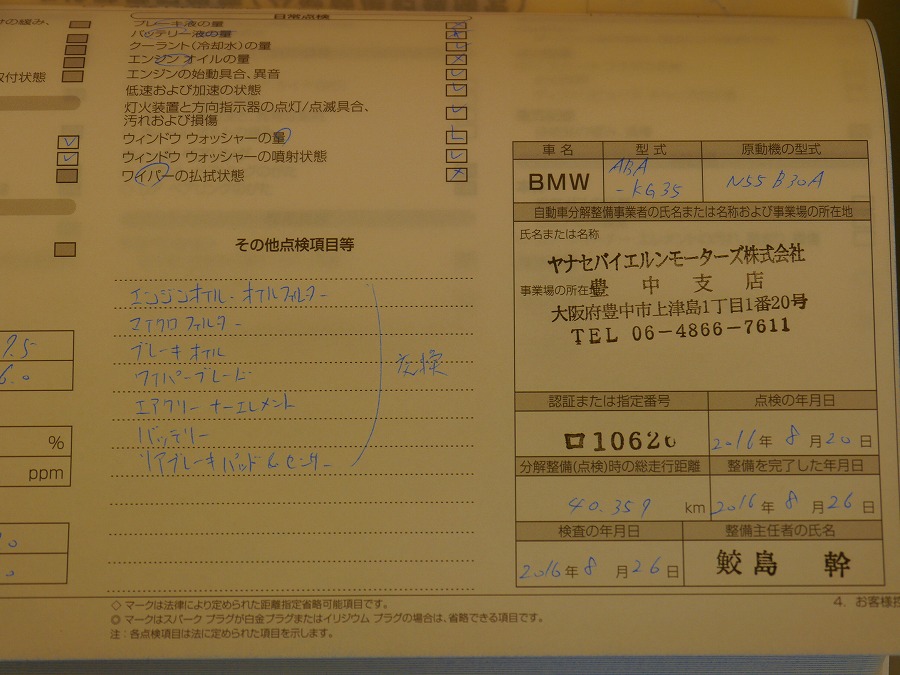 日常点検
ブレーキ液の量
バッテリー液の量
クーラント(冷却水)の量
エンジン オイルの量
エンジンの始動具合、異音
低速および加速の状態
灯火装置と方向指示器の点灯/点滅具合、
汚れおよび損傷
ウィンドウ ウォッシャーの量
ウィンドウ ウォッシャーの噴射状態
ワイパーの払拭状態
取付状態
7.5
6.0
%
ppm
その他点検項目等
エンジンオイル・オイルフィルター
マイクロフィルター
ブレーキオイル
ワイパーブレード
エアクリーナーエレメント
バッテリー
リアブレーキパッド&センサー
交換
車名 型式 原動機の型式
BMW ABA-KG35 N55B30A
自動車分解整備事業者の氏名または名称および事業場の所在地
氏名または名称
ヤナセバイエルンモーターズ株式会社
豊中支店
事業場の所在
大阪府豊中市上津島1丁目1番20号
TEL 06-4866-7611
認証または指定番号 点検の年月日
2016年8月20日
分解整備(点検)時の総走行距離 整備を完了した年月日
40.359 km 2016年8月26日
検査の年月日 整備主任者の氏名
2016年8月26日 鮫島 幹
◇ マークは法律により定められた距離指定省略可能項目です。
◎ マークはスパーク プラグが白金プラグまたはイリジウム プラグの場合は、省略できる項目です。
注：各点検項目は法に定められた項目を示します。
4. お客様控